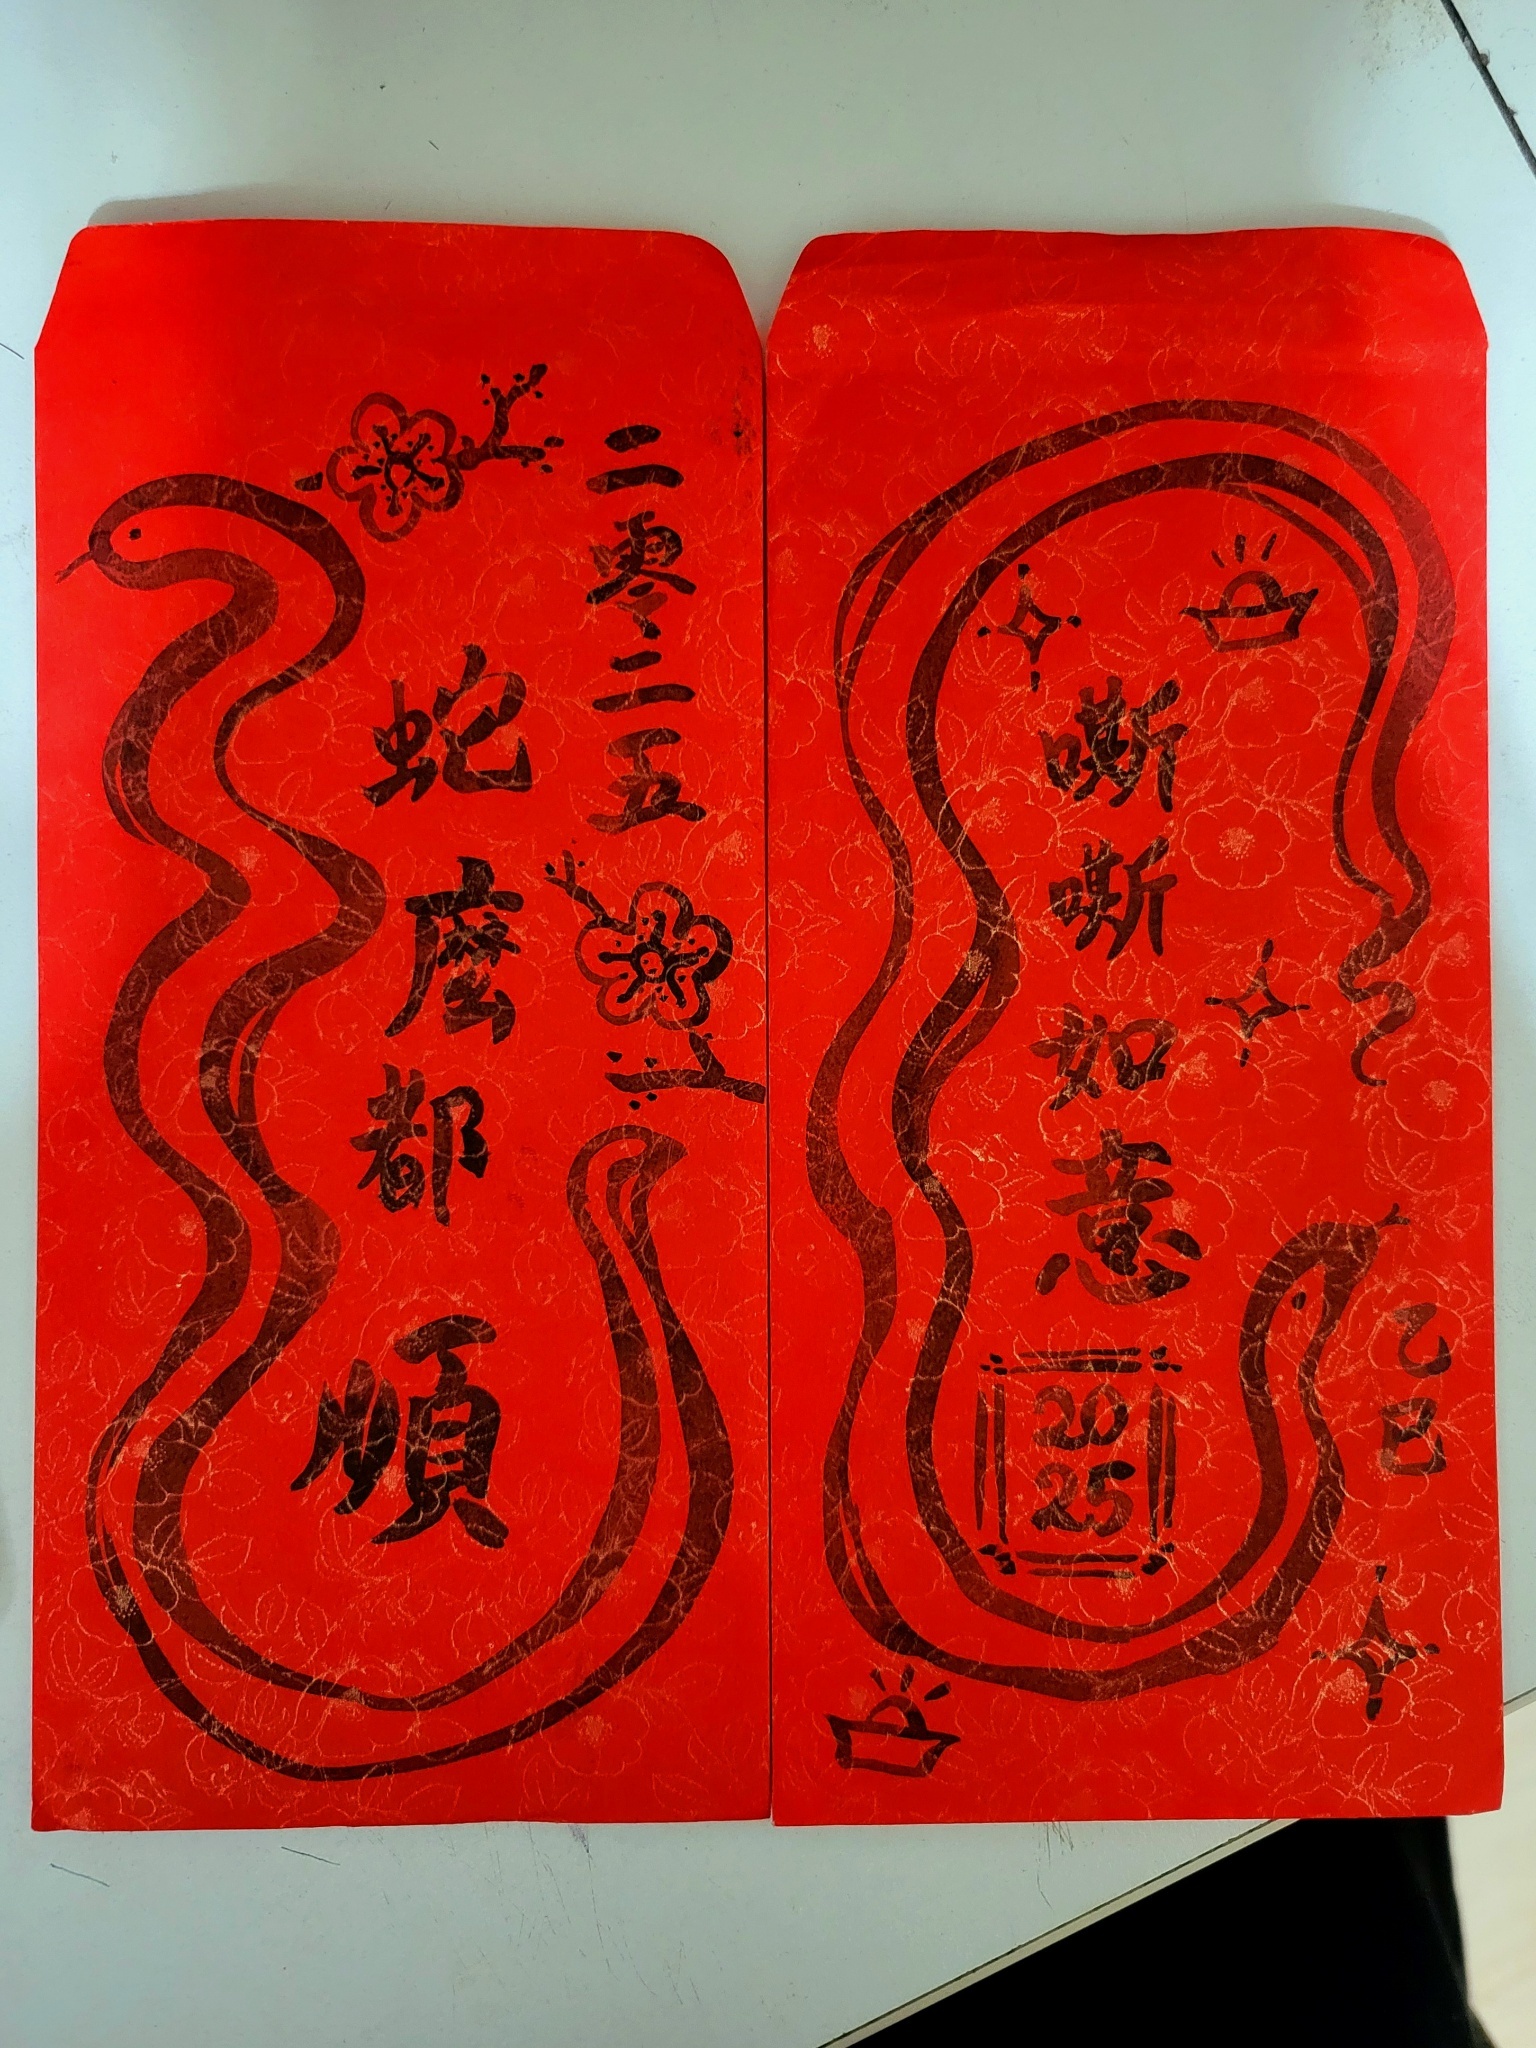 二零二五
蛇麼都順
嘶嘶如意
2025
乙巳